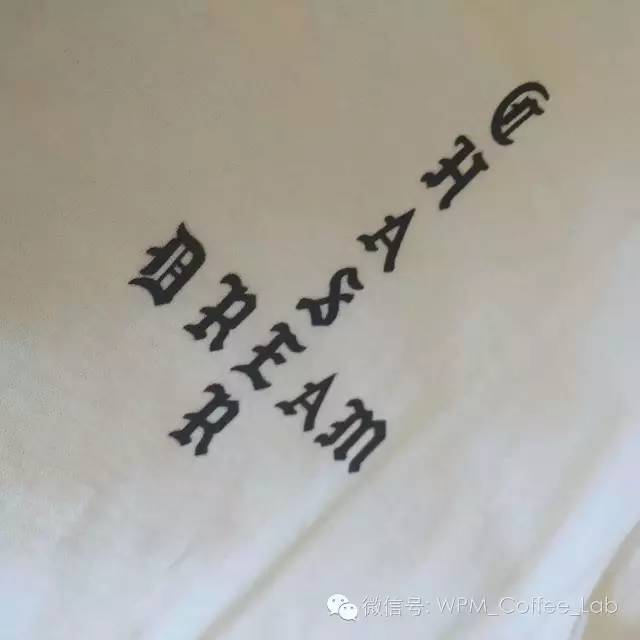 DREAM
CHASER
微信号: WPM_Coffee_Lab